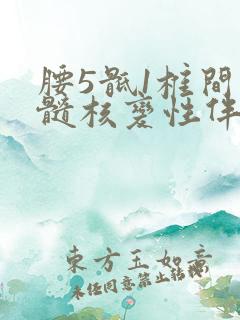 腰5骶1椎間
髓核变性伴
東方玉如意
未经同意禁止转载